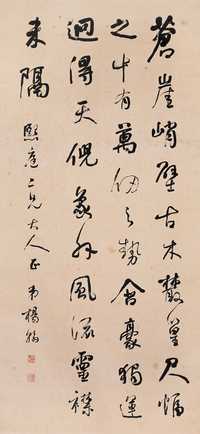 蒼崖峭壁古木叢篁尺幅
之中有萬仞之勢含豪獨運
迥得天倪象外風流靈襟
未隔 熙庭二兄大人正 弟楊翰